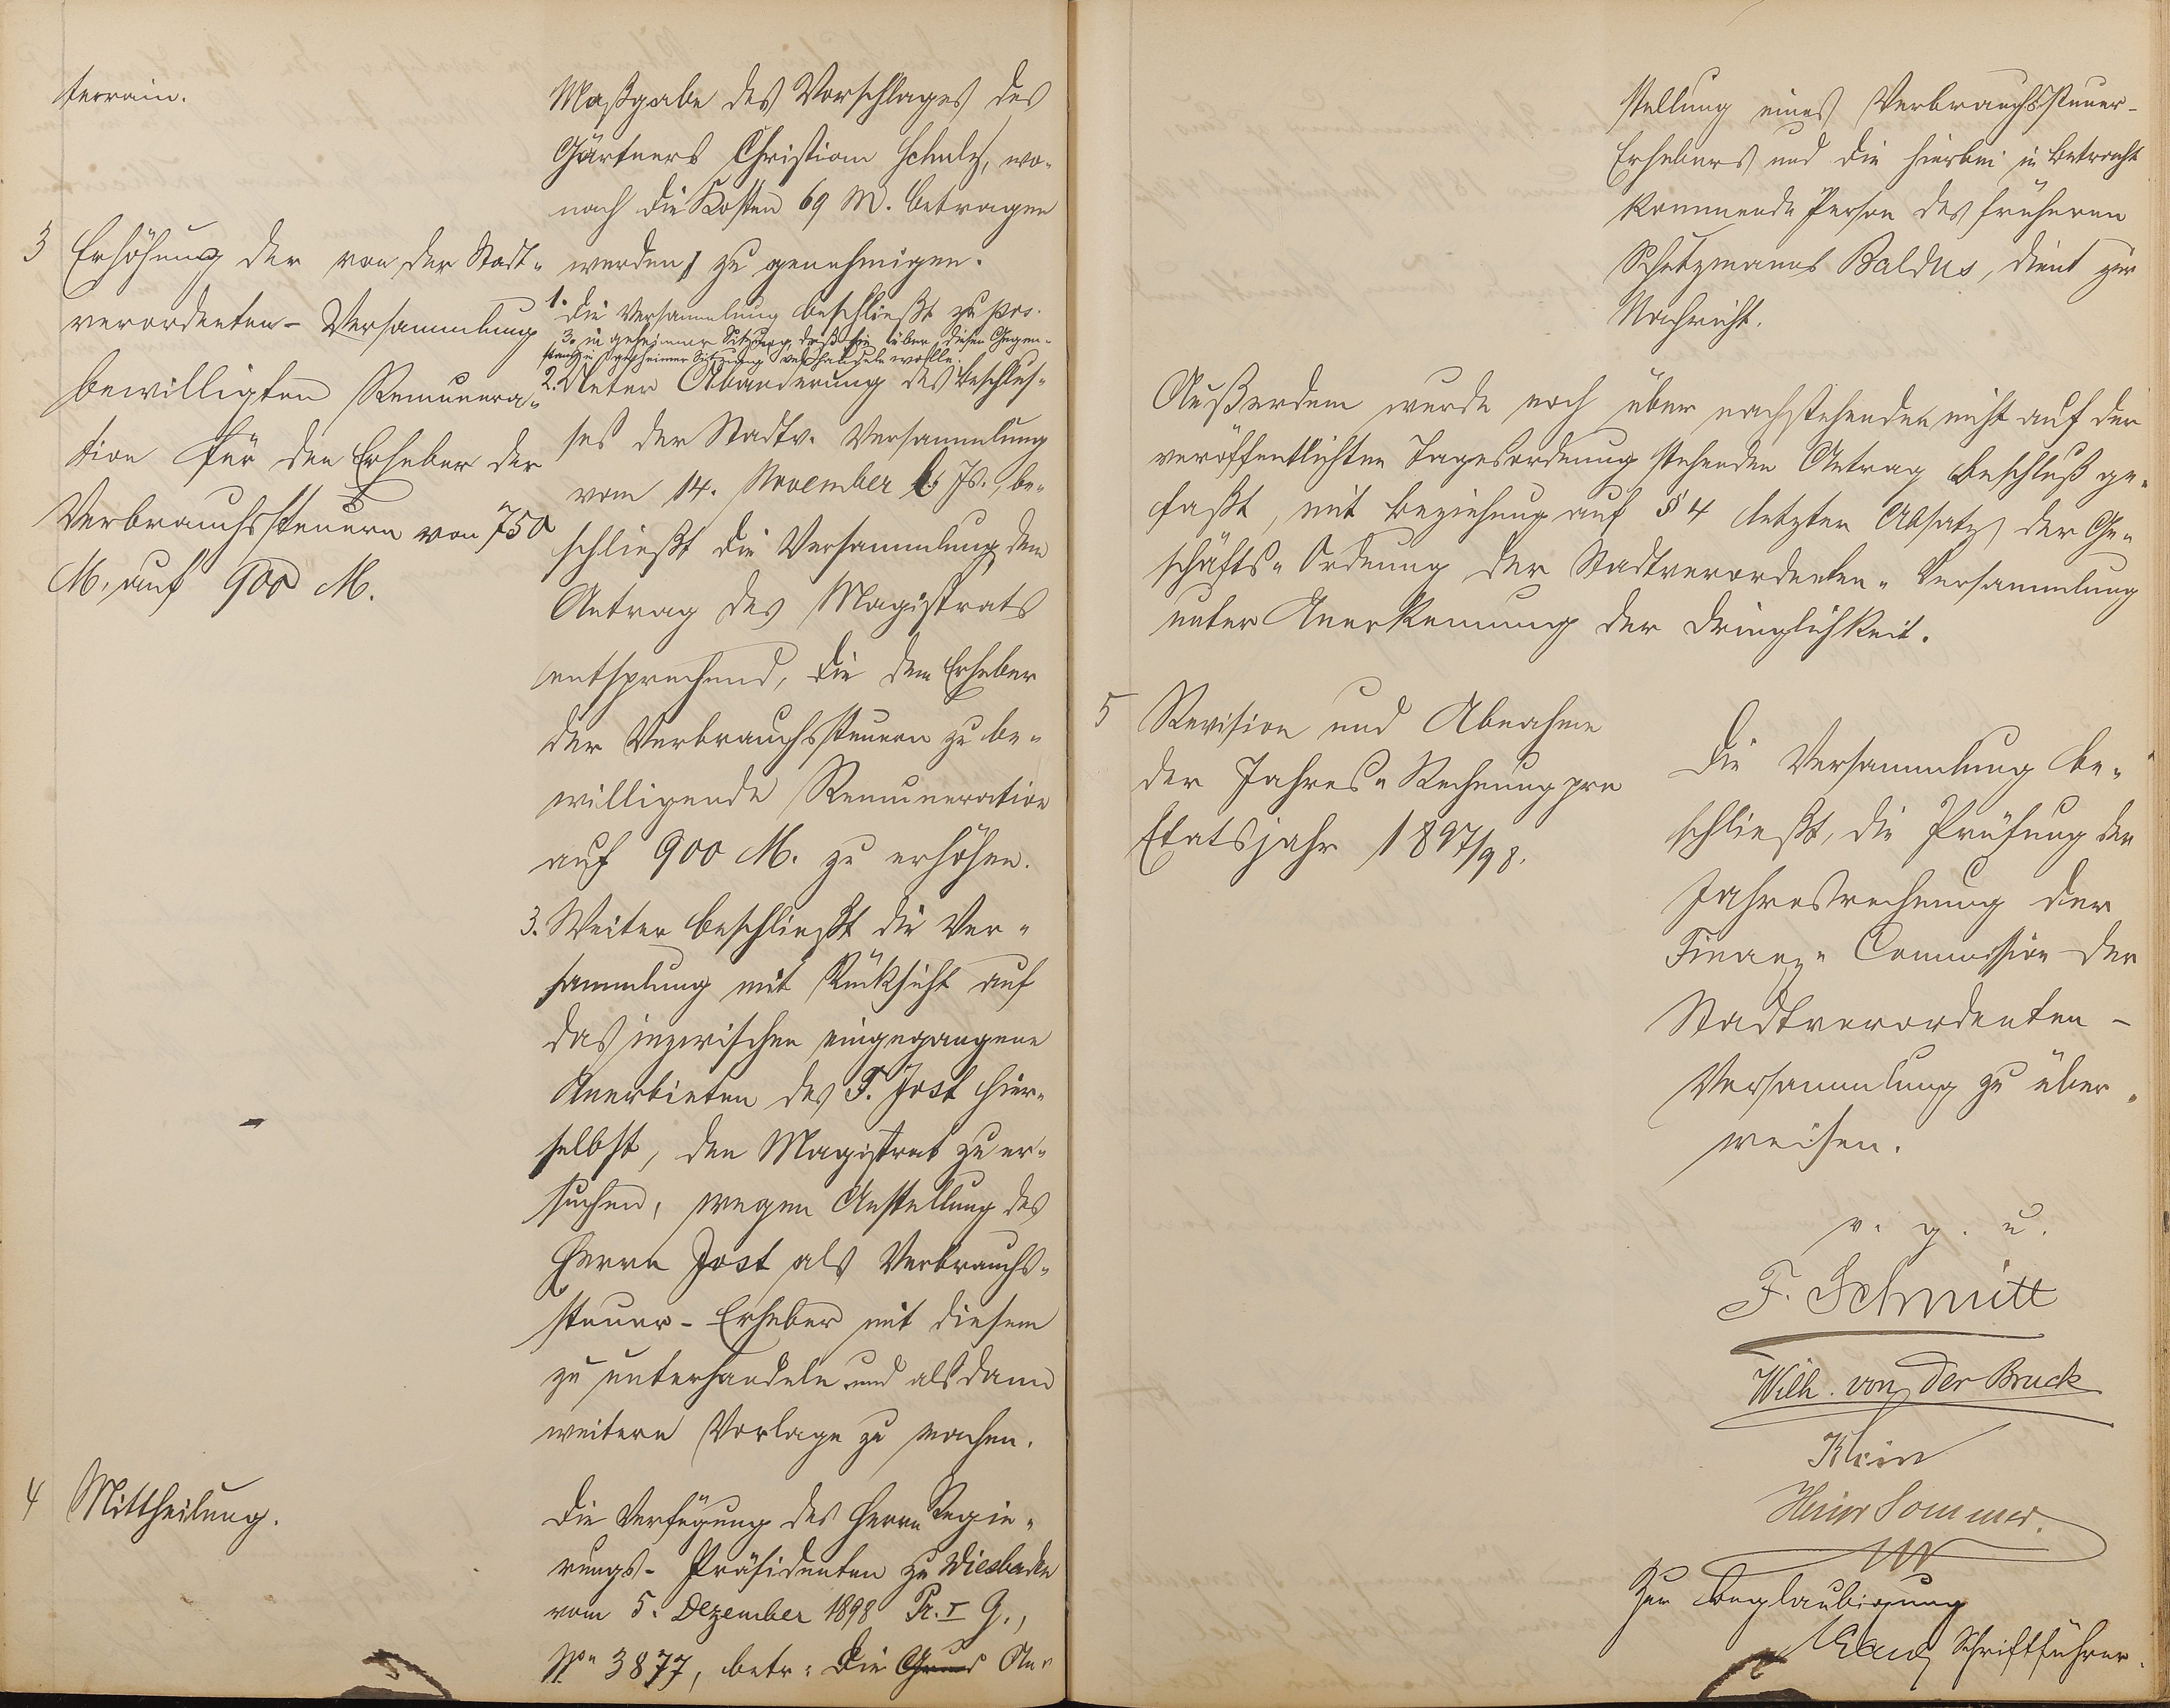 terrain.
3 Erhöhung der von der Stadt-
verordneten-Versammlung
bewilligten Remunera-
tion für den Erheber der
Verbrauchssteuern von 750
M. auf 900 M.
4 Mittheilung.
Maßgabe des Vorschlages des
Gärtners Christian Schulz, wo-
nach die Kosten 69 M. betragen
werden, zu genehmigen.
1. Die Versammlung beschließt zu pos.
3. in geheimer Sitzung, daß sie über diesen Gegen-
stand in geheimer Sitzung verhandeln wolle.
2. Unter Abänderung des Beschlus-
ses der Stadtv. Versammlung
vom 14. November Js., be-
schließt die Versammlung, dem
Antrag des Magistrats
entsprechend, die dem Erheber
der Verbrauchssteuern zu be-
willigende Remuneration
auf 900 M. zu erhöhen.
3. Weiter beschließt die Ver-
sammlung mit Rücksicht auf
das inzwischen eingegangene
Anerbieten des F. Jost hier-
selbst, den Magistrat zu er-
suchen, wegen Anstellung des
Herrn Jost als Verbrauchs-
steuer-Erheber mit diesem
zu unterhandeln und alsdann
weitere Vorlage zu machen.
Die Verfügung des Herrn Regie-
rungs-Präsidenten zu Wiesbaden
vom 5. Dezember 1898 Pr. I G.,
No 3877, betr. die An-
stellung eines Verbrauchssteuer-
Erhebers und die hierbei in Betracht
kommende Person des früheren
Schutzmanns Baldus, dient zur
Nachricht.
Außerdem wurde noch über nachstehenden nicht auf der
veröffentlichten Tagesordnung stehenden Antrag Beschluß ge-
faßt, mit Beziehung auf § 4 letzter Absatz der Ge-
schäfts-Ordnung der Stadtverordneten-Versammlung
unter Anerkennung der Dringlichkeit.
5 Revision und Abnahme
der Jahres-Rechnung pro
Etatsjahr 1897/98.
Die Versammlung be-
schließt, die Prüfung der
Jahresrechnung der
Finanz-Commission der
Stadtverordneten-
Versammlung zu über-
weisen.
v. g. u.
F. Schmitt
Wilh. von der Bruck
Klein
Heinr Sommer.
Zur Beglaubigung
Schriftführer.